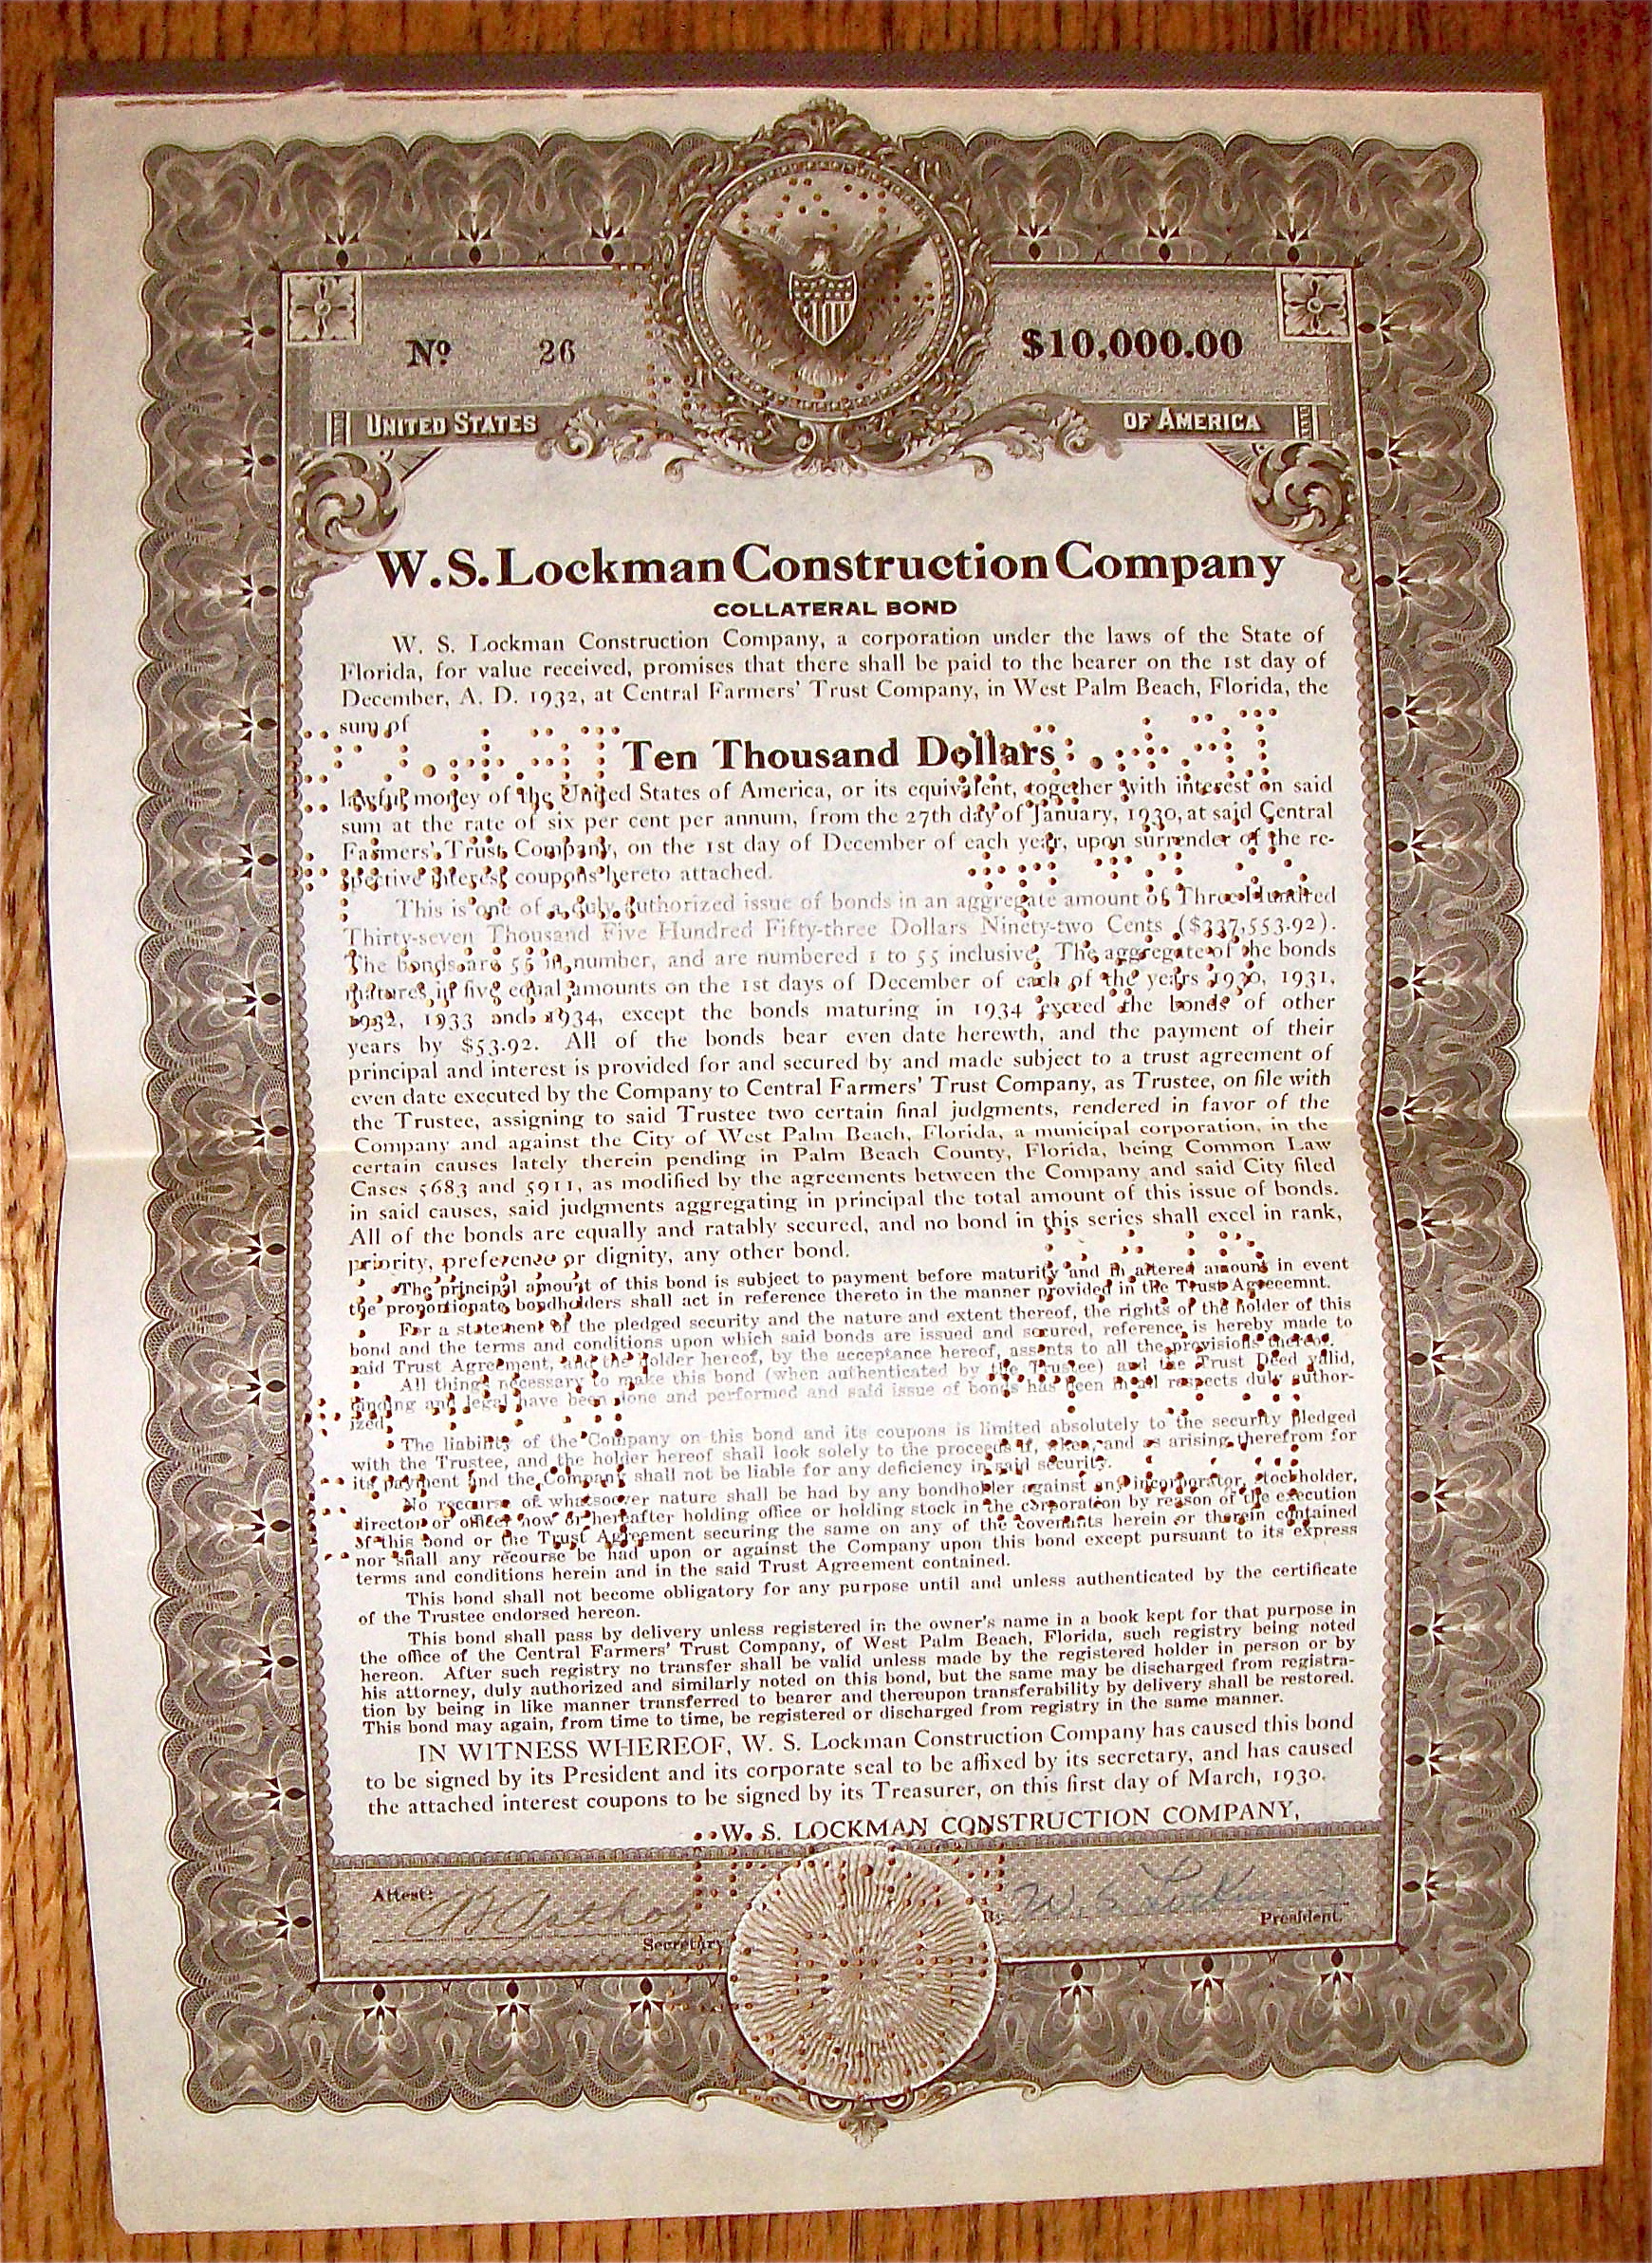 Nº 26 $10,000.00
UNITED STATES OF AMERICA
W. S. Lockman Construction Company
COLLATERAL BOND
W. S. Lockman Construction Company, a corporation under the laws of the State of
Florida, for value received, promises that there shall be paid to the bearer on the 1st day of
December, A. D. 1932, at Central Farmers' Trust Company, in West Palm Beach, Florida, the
sum of
Ten Thousand Dollars
lawful money of the United States of America, or its equivalent, together with interest on said
sum at the rate of six per cent per annum, from the 27th day of January, 1930, at said Central
Farmers' Trust Company, on the 1st day of December of each year, upon surrender of the re-
spective interest coupons hereto attached.
This is one of a duly authorized issue of bonds in an aggregate amount of Three Hundred
Thirty-seven Thousand Five Hundred Fifty-three Dollars Ninety-two Cents ($337,553.92).
The bonds are 55 in number, and are numbered 1 to 55 inclusive. The aggregate of the bonds
matures in five equal amounts on the 1st days of December of each of the years 1930, 1931,
1932, 1933 and 1934, except the bonds maturing in 1934 exceed the bonds of other
years by $53.92. All of the bonds bear even date herewth, and the payment of their
principal and interest is provided for and secured by and made subject to a trust agreement of
even date executed by the Company to Central Farmers' Trust Company, as Trustee, on file with
the Trustee, assigning to said Trustee two certain final judgments, rendered in favor of the
Company and against the City of West Palm Beach, Florida, a municipal corporation, in the
certain causes lately therein pending in Palm Beach County, Florida, being Common Law
Cases 5683 and 5911, as modified by the agreements between the Company and said City filed
in said causes, said judgments aggregating in principal the total amount of this issue of bonds.
All of the bonds are equally and ratably secured, and no bond in this series shall excel in rank,
priority, preference or dignity, any other bond.
The principal amount of this bond is subject to payment before maturity and in altered amount in event
the proportionate bondholders shall act in reference thereto in the manner provided in the Trust Agreecemnt.
For a statement of the pledged security and the nature and extent thereof, the rights of the holder of this
bond and the terms and conditions upon which said bonds are issued and secured, reference is hereby made to
said Trust Agreement, and the holder hereof, by the acceptance hereof, assents to all the provisions thereof.
All things necessary to make this bond (when authenticated by the Trustee) and the Trust Deed valid,
binding and legal have been done and performed and said issue of bonds has been in all respects duly author-
ized.
The liability of the Company on this bond and its coupons is limited absolutely to the security pledged
with the Trustee, and the holder hereof shall look solely to the proceeds if, when, and as arising therefrom for
its payment and the Company shall not be liable for any deficiency in said security.
No recourse of whatsoever nature shall be had by any bondholder against any incorporator, stockholder,
director or officer now or hereafter holding office or holding stock in the corporation by reason of the execution
of this bond or the Trust Agreement securing the same on any of the covenants herein or therein contained
nor shall any recourse be had upon or against the Company upon this bond except pursuant to its express
terms and conditions herein and in the said Trust Agreement contained.
This bond shall not become obligatory for any purpose until and unless authenticated by the certificate
of the Trustee endorsed hereon.
This bond shall pass by delivery unless registered in the owner's name in a book kept for that purpose in
the office of the Central Farmers' Trust Company, of West Palm Beach, Florida, such registry being noted
hereon. After such registry no transfer shall be valid unless made by the registered holder in person or by
his attorney, duly authorized and similarly noted on this bond, but the same may be discharged from registra-
tion by being in like manner transferred to bearer and thereupon transferability by delivery shall be restored.
This bond may again, from time to time, be registered or discharged from registry in the same manner.
IN WITNESS WHEREOF, W. S. Lockman Construction Company has caused this bond
to be signed by its President and its corporate seal to be affixed by its secretary, and has caused
the attached interest coupons to be signed by its Treasurer, on this first day of March, 1930.
W. S. LOCKMAN CONSTRUCTION COMPANY,
Attest:
Secretary
By W. S. Lockman
President.